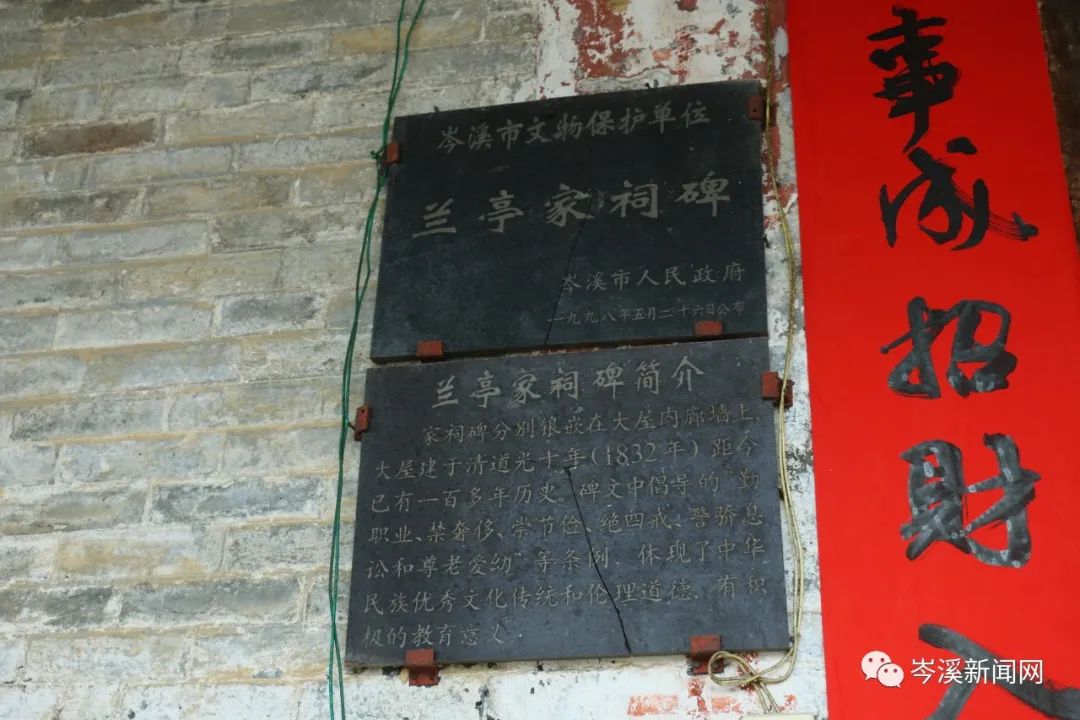 岑溪市文物保护单位
兰亭家祠碑
岑溪市人民政府
一九九八年五月二十六日公布
兰亭家祠碑简介
家祠碑分别银嵌在大屋内廊墙上,
大屋建于清道光十年(1832年)距今
已有一百多年历史。碑文中倡导的"勤
职业、禁奢侈、崇节俭、绝四戒、警骄息
讼和尊老爱幼"等条例,体现了中华
民族优秀文化传统和伦理道德,有积
极的教育意义
事成招财入
岑溪新闻网